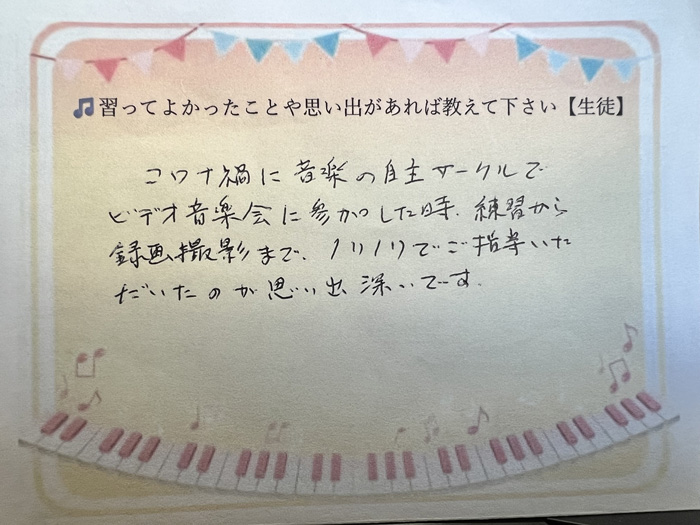 習ってよかったことや思い出があれば教えて下さい【生徒】
コロナ禍に音楽の自主サークルで
ビデオ音楽会に参加した時、練習から
録画撮影まで、ノリノリでご指導いた
だいたのが思い出深いです。